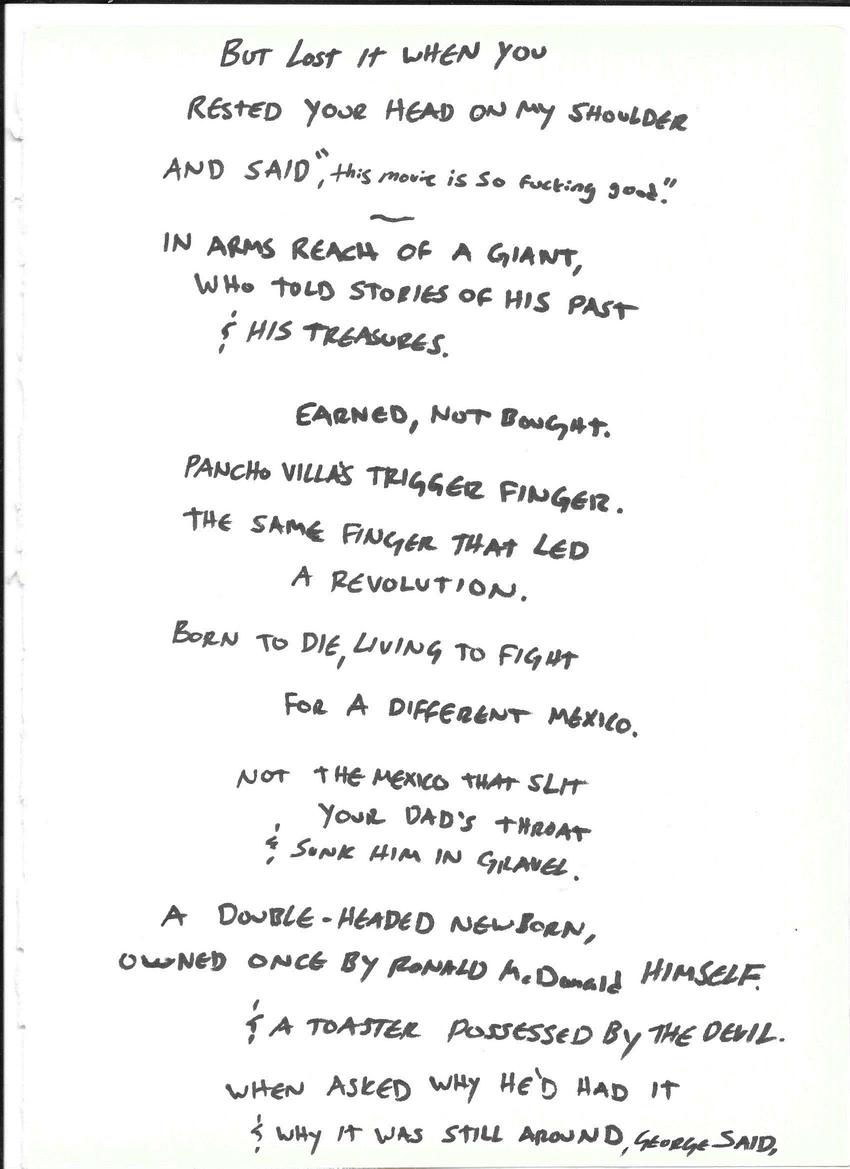 BUT LOST IT WHEN YOU
RESTED YOUR HEAD ON MY SHOULDER
AND SAID", this movie is so fucking good."
~
IN ARMS REACH OF A GIANT,
WHO TOLD STORIES OF HIS PAST
& HIS TREASURES.
EARNED, NOT BOUGHT.
PANCHO VILLA'S TRIGGER FINGER.
THE SAME FINGER THAT LED
A REVOLUTION.
BORN TO DIE, LIVING TO FIGHT
FOR A DIFFERENT MEXICO.
NOT THE MEXICO THAT SLIT
YOUR DAD'S THROAT
& SUNK HIM IN GRAVEL.
A DOUBLE-HEADED NEWBORN,
OWNED ONCE BY RONALD McDonald HIMSELF.
& A TOASTER POSSESSED BY THE DEVIL.
WHEN ASKED WHY HE'D HAD IT
& WHY IT WAS STILL AROUND, GEORGE SAID,